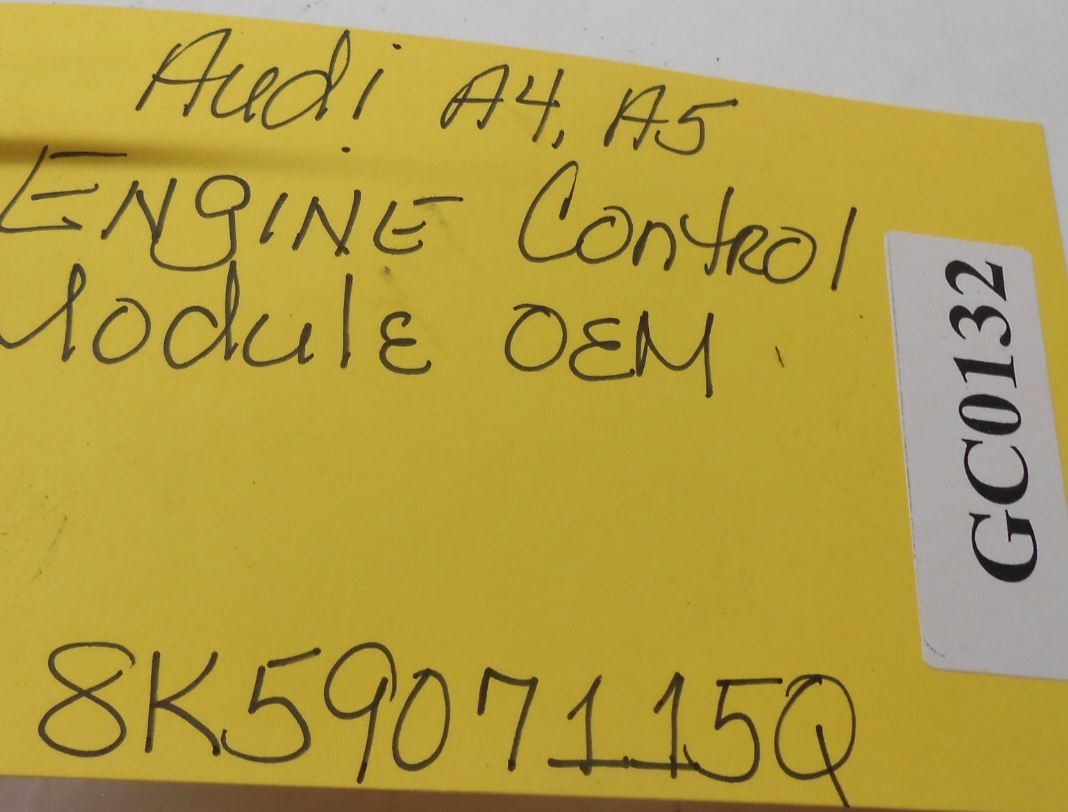 Audi A4, A5
ENgiNE Control
Module OEM
GC0132
8K5907115Q